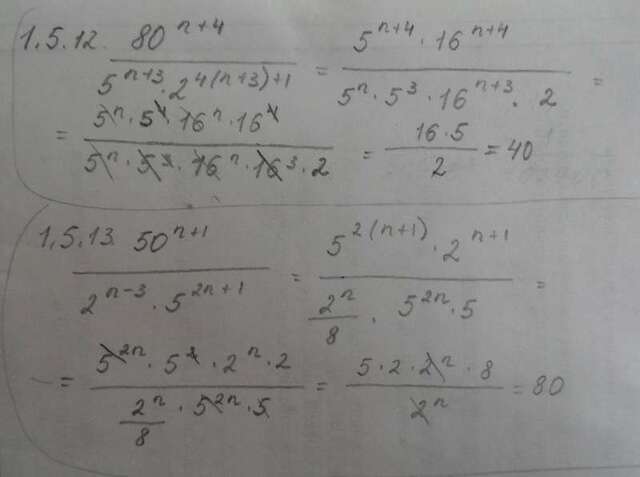 1.5.12. 80^{n+4} / (5^{n+3} · 2^{4(n+3)+1}) = 5^{n+4} · 16^{n+4} / (5^n · 5^3 · 16^{n+3} · 2) =
= 5^n · 5^4 · 16^n · 16^4 / (5^n · 5^3 · 16^n · 16^3 · 2) = 16 · 5 / 2 = 40
1.5.13. 50^{n+1} / (2^{n-3} · 5^{2n+1}) = 5^{2(n+1)} · 2^{n+1} / (2^n/8 · 5^{2n} · 5) =
= 5^{2n} · 5^2 · 2^n · 2 / (2^n/8 · 5^{2n} · 5) = 5 · 2 · 2^n · 8 / 2^n = 80